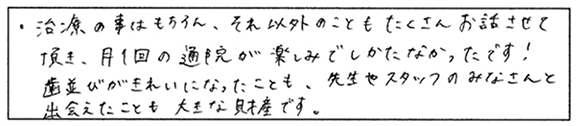 ・治療の事はもちろん、それ以外のこともたくさんお話させて
頂き、月1回の通院が楽しみでしかたなかったです!
歯並びがきれいになったことも、先生やスタッフのみなさんと
出会えたことも大きな財産です。